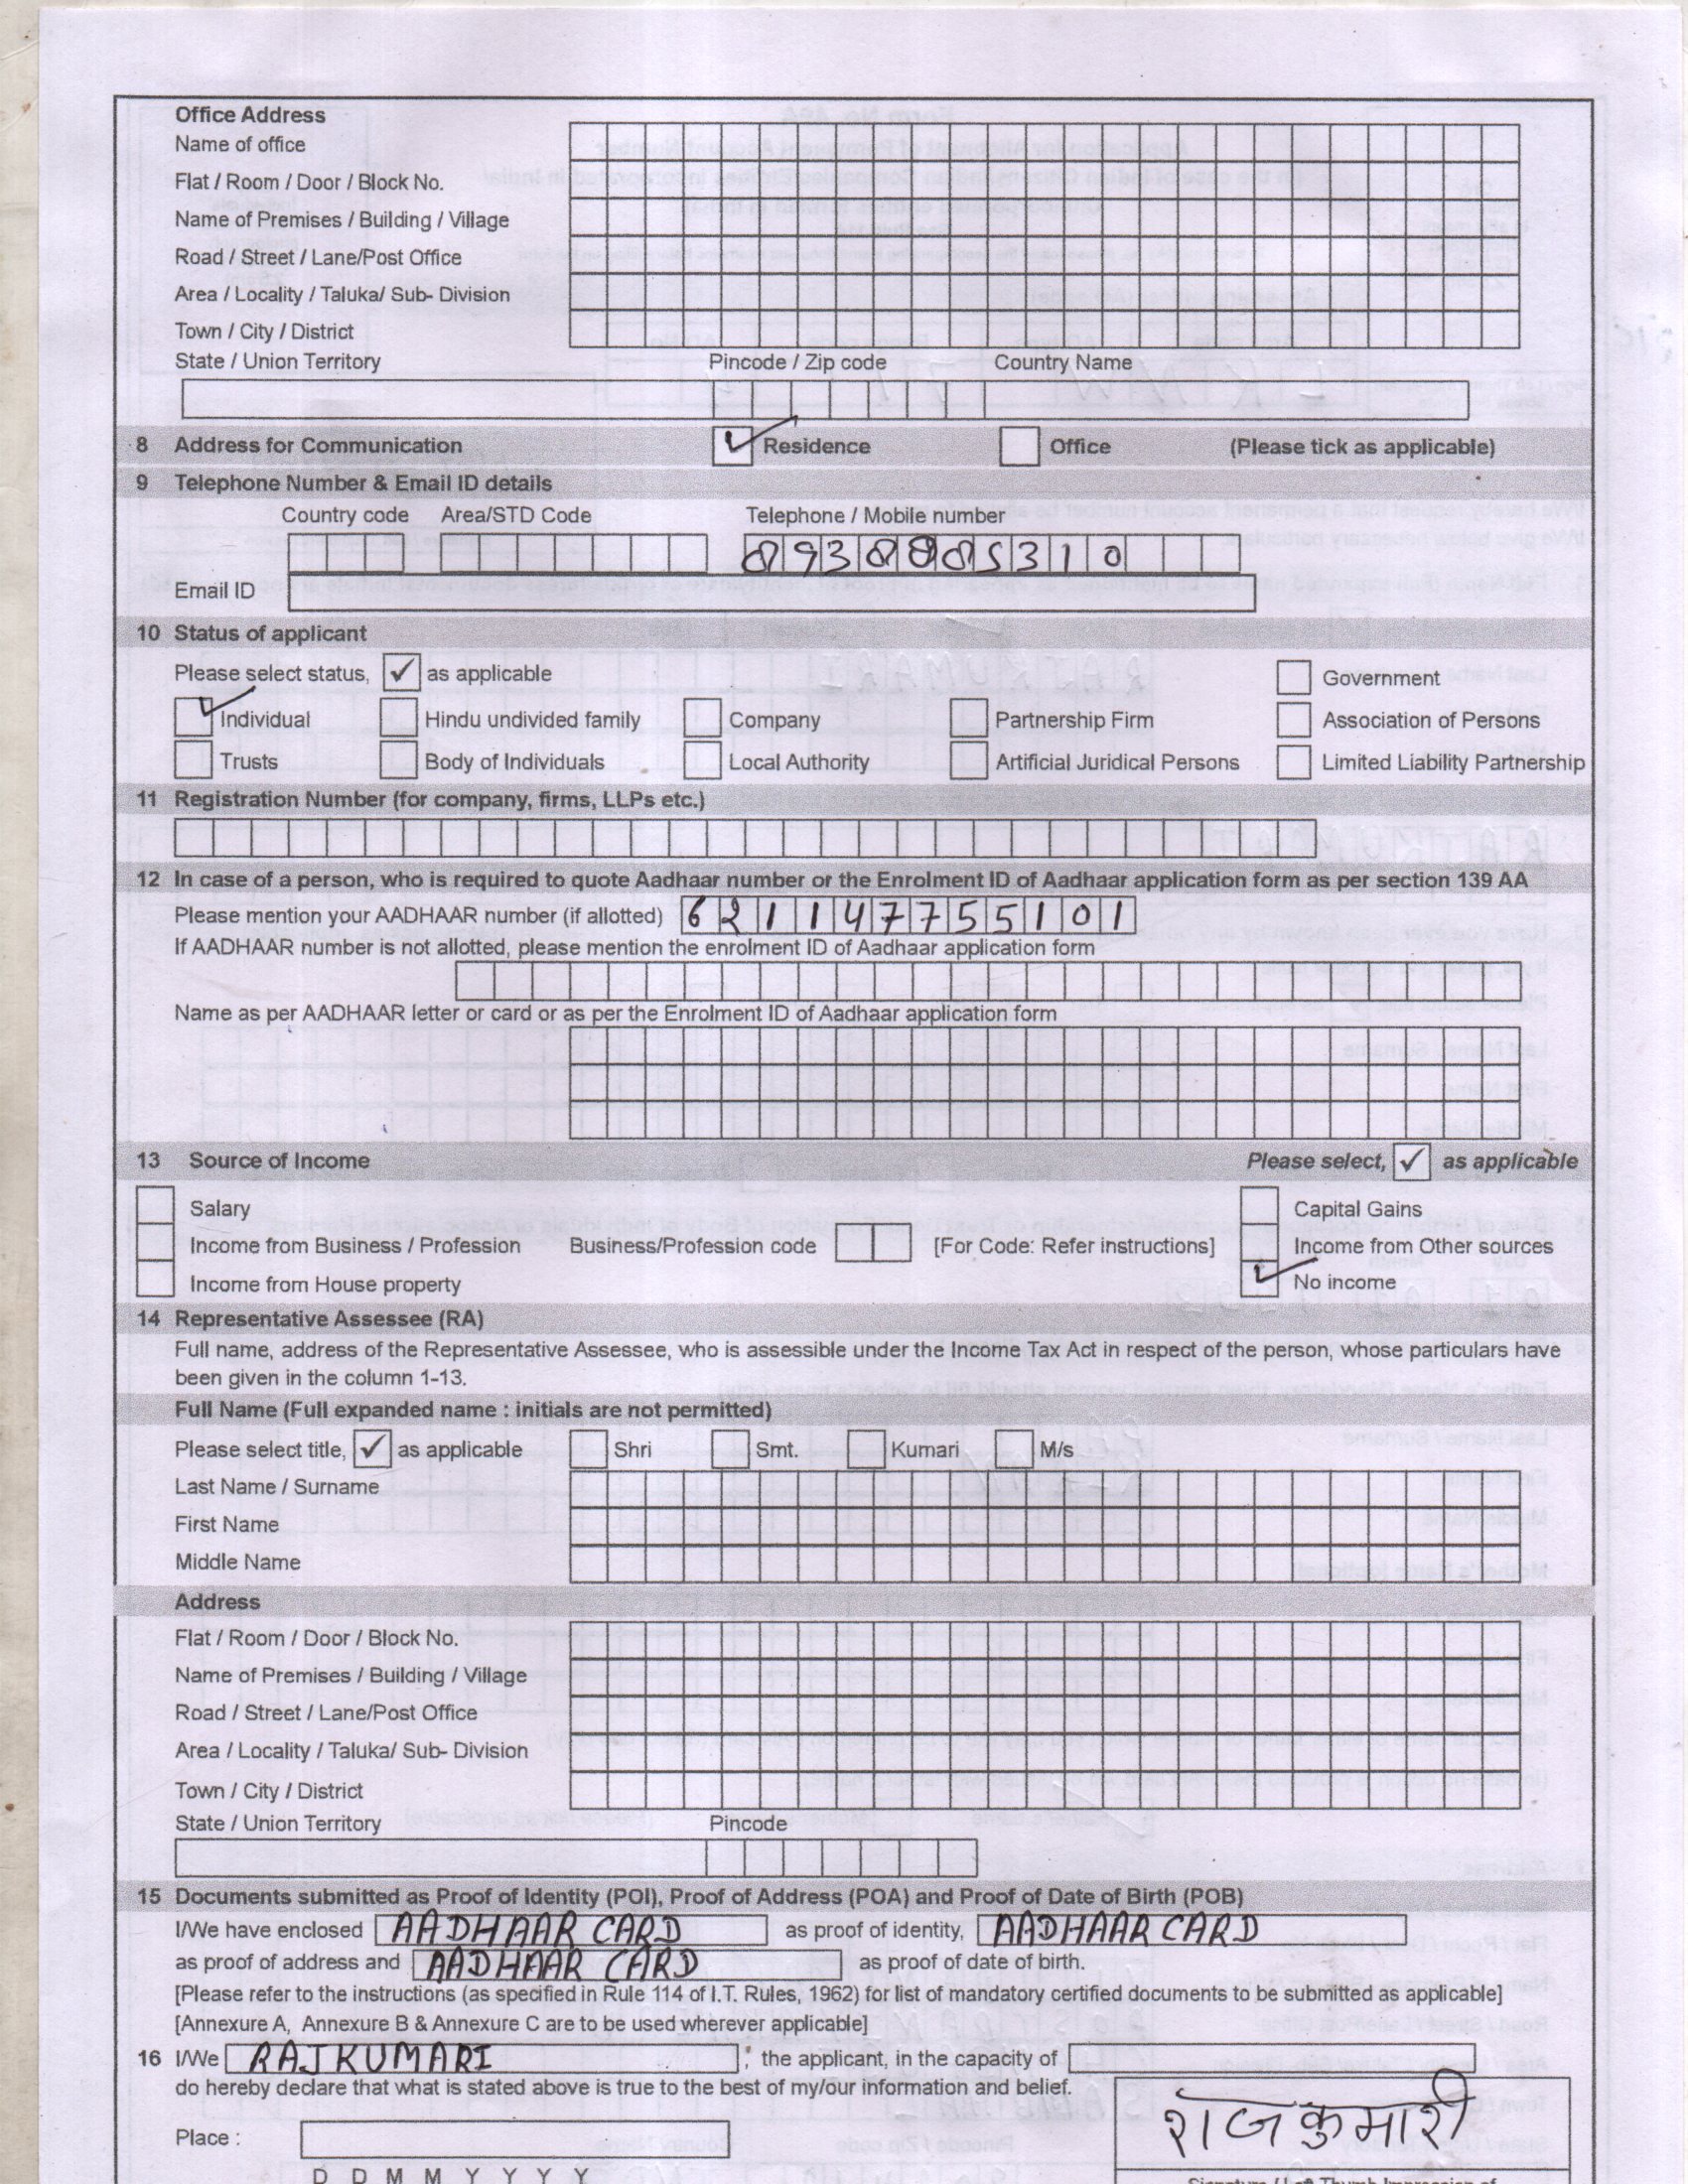 Office Address
Name of office
Flat / Room / Door / Block No.
Name of Premises / Building / Village
Road / Street / Lane/Post Office
Area / Locality / Taluka/ Sub- Division
Town / City / District
State / Union Territory Pincode / Zip code Country Name
8 Address for Communication ✓ Residence Office (Please tick as applicable)
9 Telephone Number & Email ID details
Country code Area/STD Code Telephone / Mobile number
Email ID
10 Status of applicant
Please select status, ✓ as applicable Government
✓ Individual Hindu undivided family Company Partnership Firm Association of Persons
Trusts Body of Individuals Local Authority Artificial Juridical Persons Limited Liability Partnership
11 Registration Number (for company, firms, LLPs etc.)
12 In case of a person, who is required to quote Aadhaar number or the Enrolment ID of Aadhaar application form as per section 139 AA
Please mention your AADHAAR number (if allotted) 621147755101
If AADHAAR number is not allotted, please mention the enrolment ID of Aadhaar application form
Name as per AADHAAR letter or card or as per the Enrolment ID of Aadhaar application form
13 Source of Income Please select, ✓ as applicable
Salary Capital Gains
Income from Business / Profession Business/Profession code [For Code: Refer instructions] Income from Other sources
Income from House property ✓ No income
14 Representative Assessee (RA)
Full name, address of the Representative Assessee, who is assessible under the Income Tax Act in respect of the person, whose particulars have
been given in the column 1-13.
Full Name (Full expanded name : initials are not permitted)
Please select title, ✓ as applicable Shri Smt. Kumari M/s
Last Name / Surname
First Name
Middle Name
Address
Flat / Room / Door / Block No.
Name of Premises / Building / Village
Road / Street / Lane/Post Office
Area / Locality / Taluka/ Sub- Division
Town / City / District
State / Union Territory Pincode
15 Documents submitted as Proof of Identity (POI), Proof of Address (POA) and Proof of Date of Birth (POB)
I/We have enclosed AADHAAR CARD as proof of identity, AADHAAR CARD
as proof of address and AADHAAR CARD as proof of date of birth.
[Please refer to the instructions (as specified in Rule 114 of I.T. Rules, 1962) for list of mandatory certified documents to be submitted as applicable]
[Annexure A, Annexure B & Annexure C are to be used wherever applicable]
16 I/We RAJKUMARI , the applicant, in the capacity of
do hereby declare that what is stated above is true to the best of my/our information and belief.
राजकुमारी
Place :
D D M M Y Y Y Y
Signature / Left Thumb Impression of